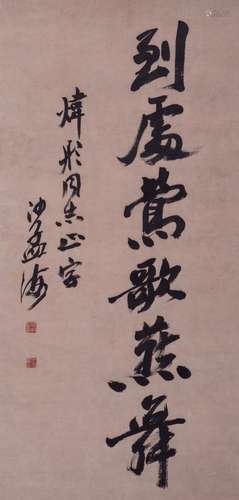 到處莺歌燕舞
煒彤同志正字
沙孟海